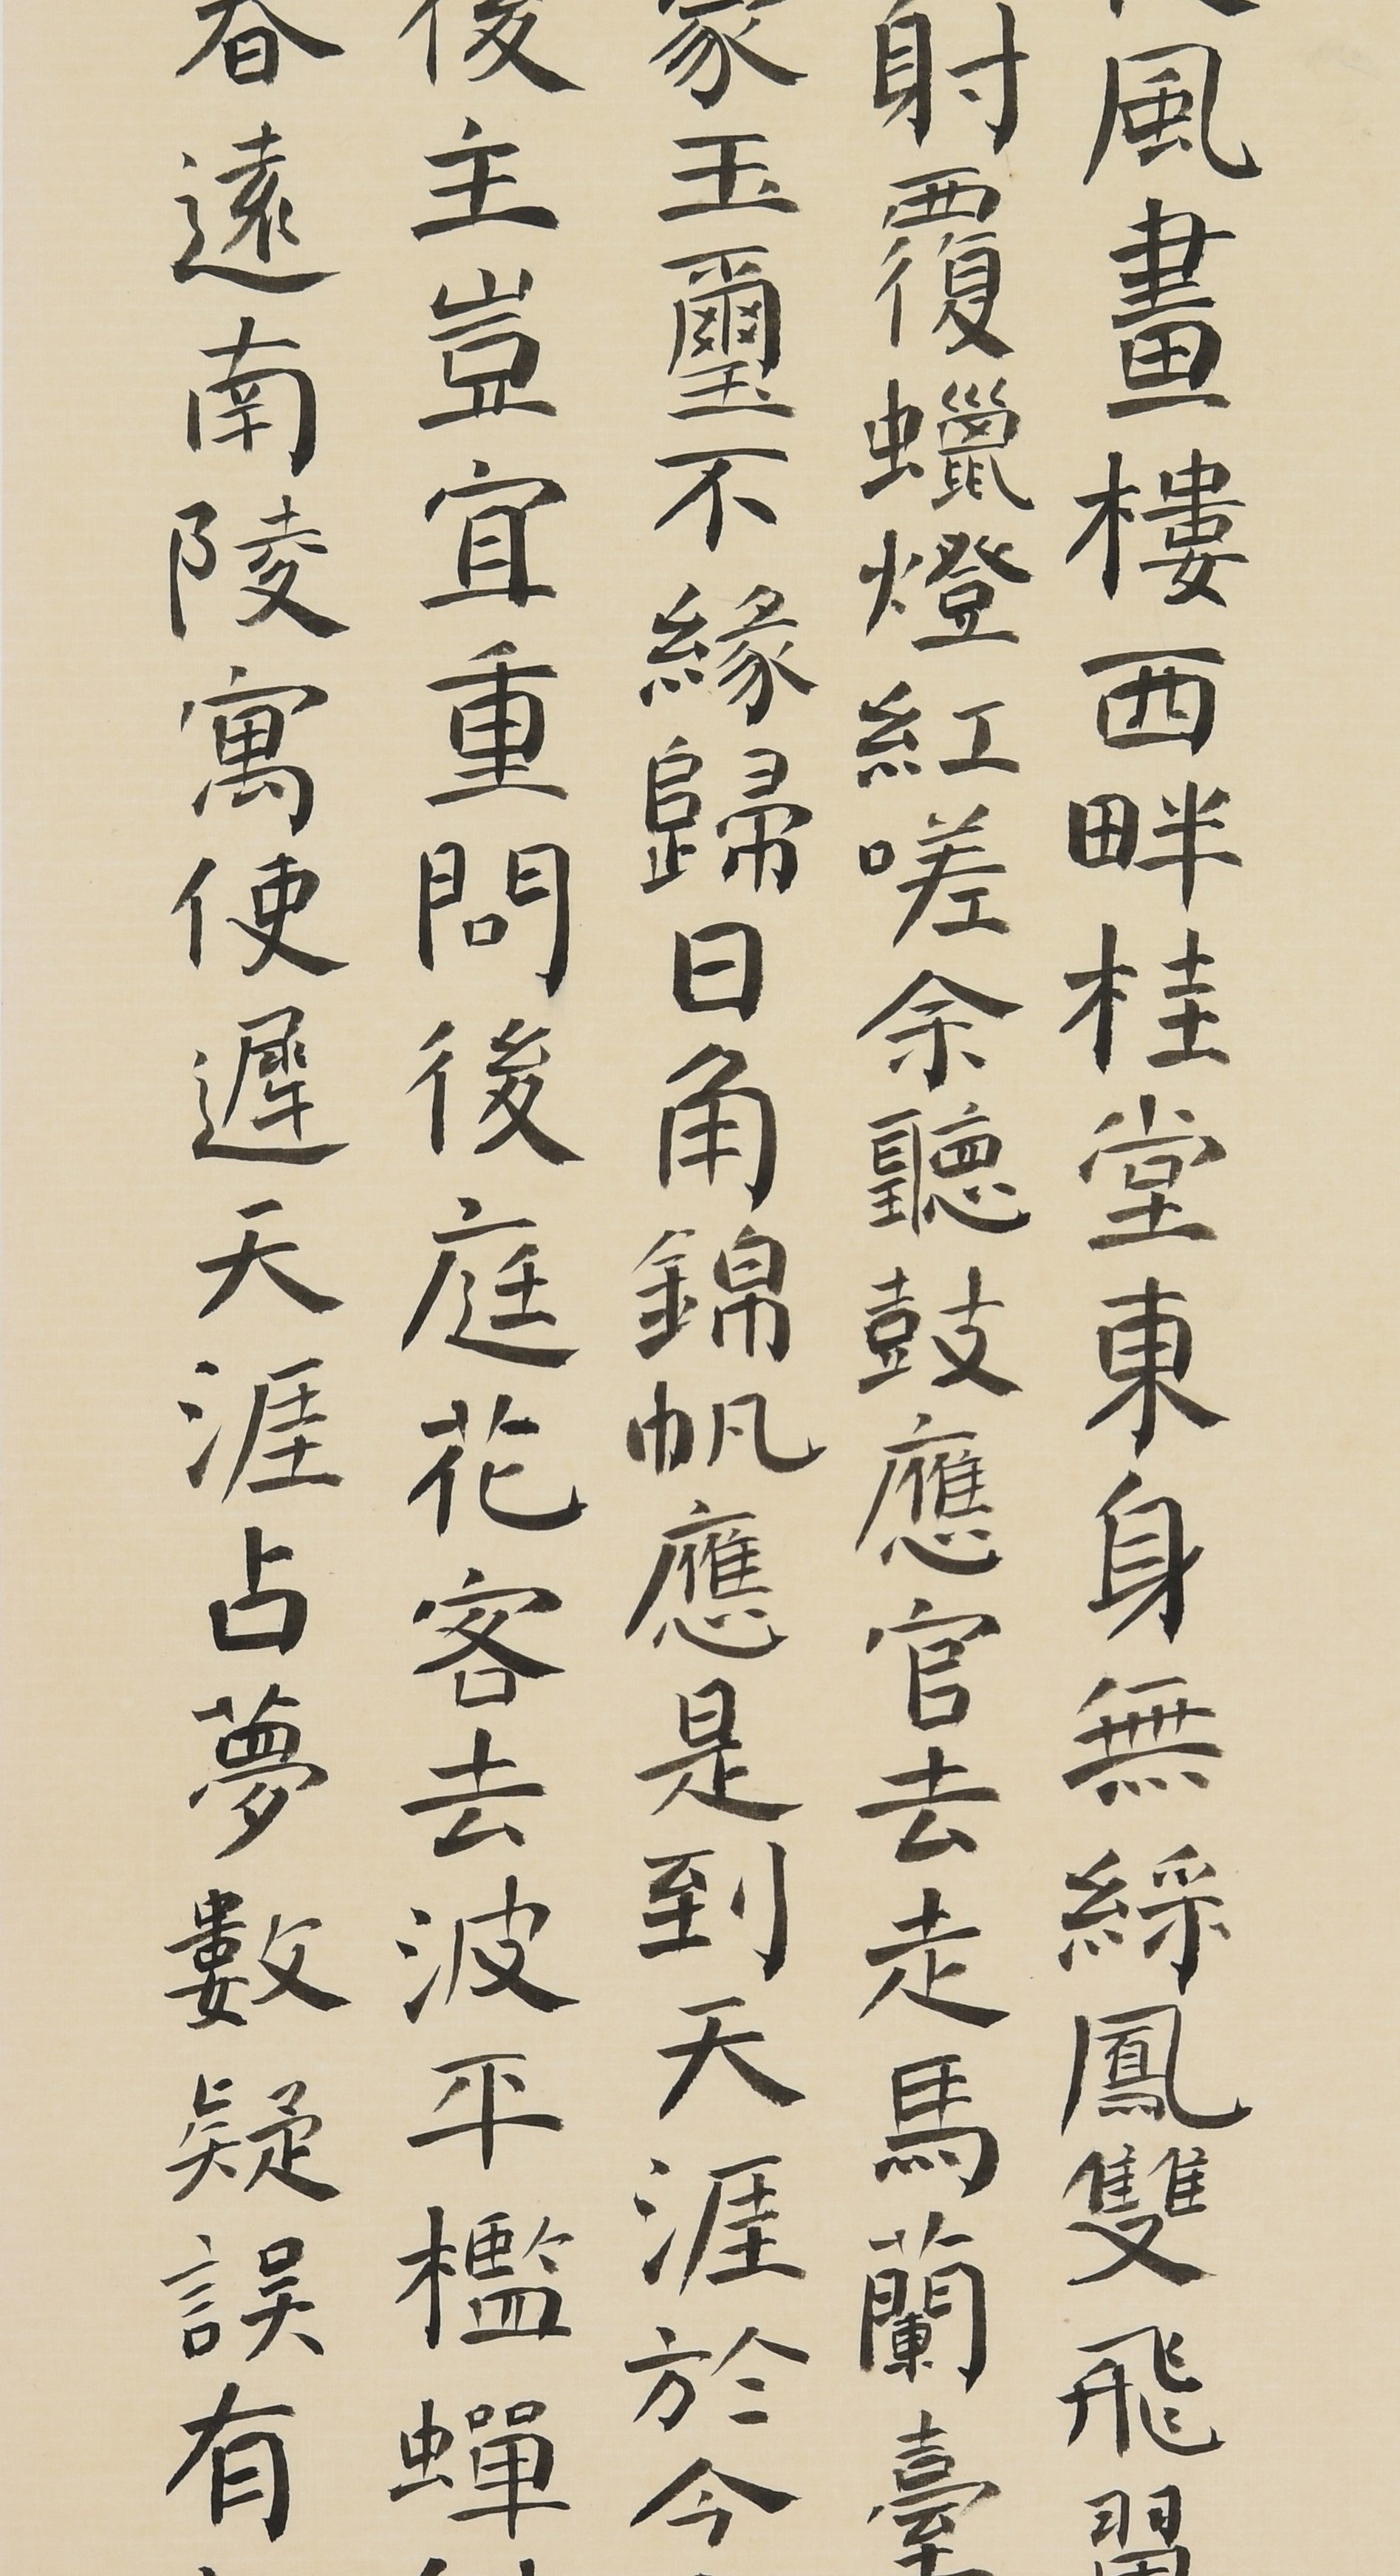 風畫樓西畔桂堂東身無綵鳳雙飛翼
射覆蠟燈紅嗟余聽鼓應官去走馬蘭臺
家玉璽不緣歸日角錦帆應是到天涯於今
後主豈宜重問後庭花客去波平檻蟬
春遠南陵寓使遲天涯占夢數疑誤有